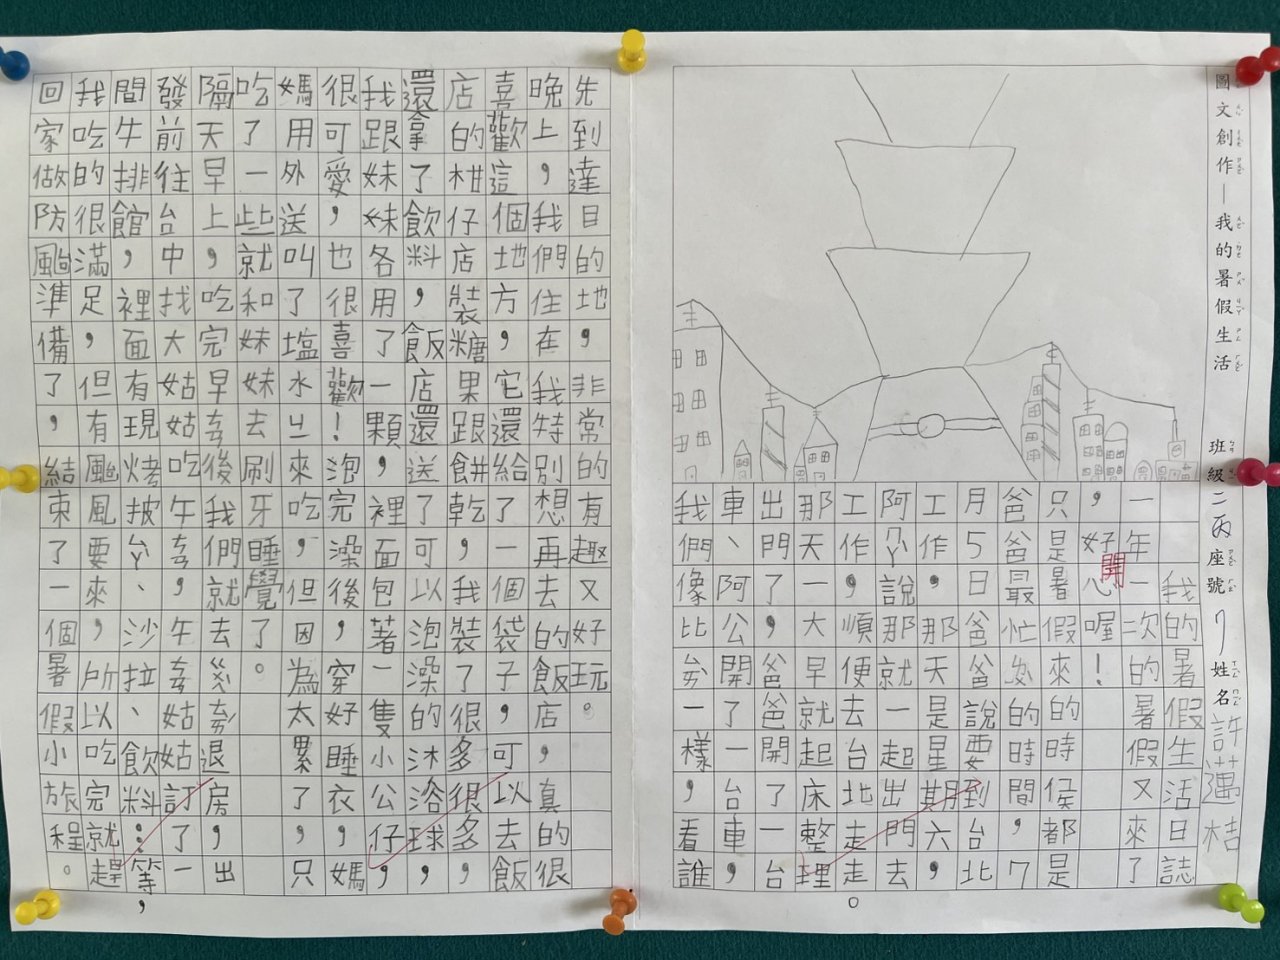 圖文創作—我的暑假生活 班級二丙座號7姓名許
我的暑假生活日誌
一年一次的暑假又來了
，好開心喔！
只是暑假來的時侯都是
爸爸最忙的時間，7
月5日爸爸說要到台北
工作，那天是星期六，
阿公說那就一起出門去
工作，順便去台北走走。
那天一大早就起床整理
出門了，爸爸開了一台
車、阿公開了一台車，
我們像比賽一樣，看誰
先到達目的地，非常的有趣又好玩。
晚上，我們住在我特別想再去的飯店，真的很
喜歡這個地方，它還給了一個袋子，可以去飯
店的柑仔店裝糖果跟餅乾，我裝了很多很多，
還拿了飲料，飯店還送了可以泡澡的沐浴球，
我跟妹妹各用了一顆，裡面包著一隻小公仔，
很可愛，也很喜歡！泡完澡後，穿好睡衣，媽
媽用外送叫了塩水ㄐㄧ來吃，但因為太累了，只
吃了一些就和妹妹去刷牙睡覺了。
隔天早上，吃完早餐後我們就去退房，出
發前往台中找大姑姑吃午餐，午餐姑姑訂了一
間牛排館，裡面有現烤披ㄙㄚ、沙拉、飲料：等，
我吃的很滿足，但有颱風要來，所以吃完就趕
回家做防颱準備了，結束了一個暑假小旅程。